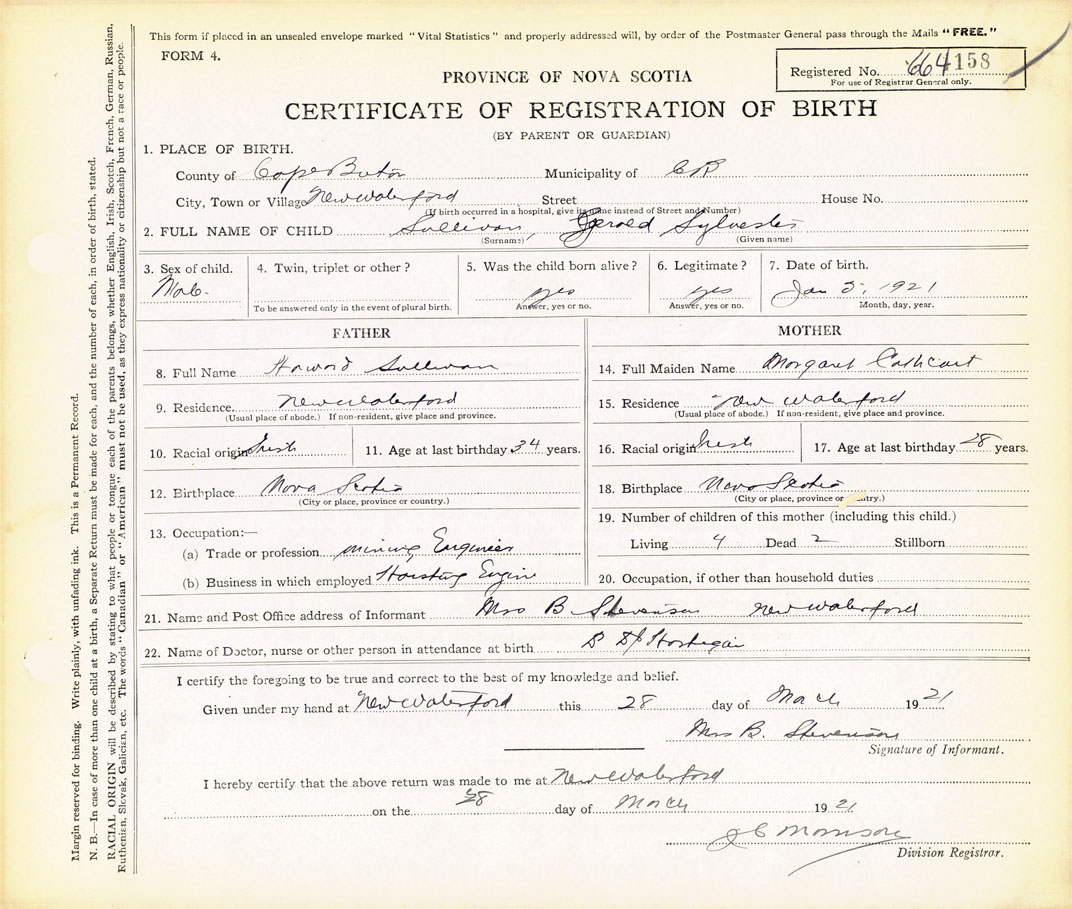 This form if placed in an unsealed envelope marked "Vital Statistics" and properly addressed will, by order of the Postmaster General pass through the Mails "FREE."
FORM 4.
Registered No. 664158
For use of Registrar General only.
PROVINCE OF NOVA SCOTIA
CERTIFICATE OF REGISTRATION OF BIRTH
(BY PARENT OR GUARDIAN)
1. PLACE OF BIRTH.
County of Cape Breton Municipality of CB
City, Town or Village New Waterford Street House No.
(If birth occurred in a hospital, give its name instead of Street and Number)
2. FULL NAME OF CHILD Sullivan, Gerald Sylvester
(Surname) (Given name)
3. Sex of child. 4. Twin, triplet or other? 5. Was the child born alive? 6. Legitimate? 7. Date of birth.
Male yes yes Jan 5, 1921
To be answered only in the event of plural birth. Answer, yes or no. Answer, yes or no. Month, day, year.
FATHER
8. Full Name Howard Sullivan
9. Residence New Waterford
(Usual place of abode.) If non-resident, give place and province.
10. Racial origin Irish 11. Age at last birthday 34 years.
12. Birthplace Nova Scotia
(City or place, province or country.)
13. Occupation:—
(a) Trade or profession mining Engineer
(b) Business in which employed Hoisting Engin
MOTHER
14. Full Maiden Name Margaret Cathcart
15. Residence New Waterford
(Usual place of abode.) If non-resident, give place and province.
16. Racial origin Irish 17. Age at last birthday 28 years.
18. Birthplace Nova Scotia
(City or place, province or ntry.)
19. Number of children of this mother (including this child.)
Living 4 Dead 2 Stillborn
20. Occupation, if other than household duties
21. Name and Post Office address of Informant Mrs B Stevenson New Waterford
22. Name of Doctor, nurse or other person in attendance at birth
I certify the foregoing to be true and correct to the best of my knowledge and belief.
Given under my hand at New Waterford this 28 day of March 1921
Mrs B. Stevenson
Signature of Informant.
I hereby certify that the above return was made to me at New Waterford
on the 28 day of March 1921
J C Morrison
Division Registrar.
Margin reserved for binding. Write plainly, with unfading ink. This is a Permanent Record.
N. B.—In case of more than one child at a birth, a Separate Return must be made for each, and the number of each, in order of birth, stated.
RACIAL ORIGIN will be described by stating to what people or tongue each of the parents belongs, whether English, Irish, Scotch, French, German, Russian,
Ruthenian, Slovak, Galician, etc. The words "Canadian" or "American" must not be used, as they express nationality or citizenship but not a race or people.